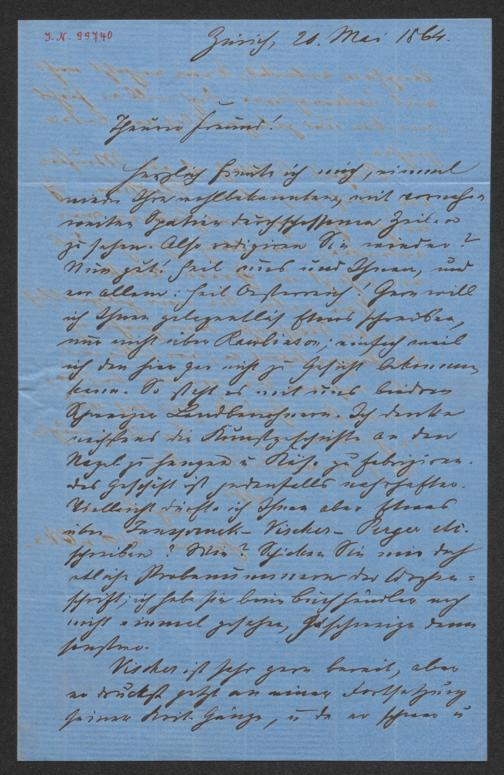 J. N. 99740
Zürich, 20. Mai 1864.
Theurer Freund!
Herzlich freute ich mich, einmal
wieder Ihre wohlbekannten, mit
weiten Spatien durchschossenen Zeilen
zu sehen. Also redigiren Sie wieder?
Nun gut! Heil uns und Ihnen, und
vor allem: Heil Oesterreich! Gern will
ich Ihnen gelegentlich Etwas schreiben,
nur nicht über; einfach weil
ich den hier gar nicht zu Gesicht bekommen
kann. So steht es mit uns beiden
Schweizer Landbewohnern. Ich denke
nächstens die Kunstgeschichte an den
Nagel zu hängen u. Käse zu fabriziren.
Das Geschäft ist jedenfalls nahrhafter.
Vielleicht dürfte ich Ihnen aber Etwas
über - Vischer - Perger etc.
schreiben? Wie? Schicken Sie mir doch
etliche Probenummern der Wochen=
schrift; ich habe sie beim Buchhändler noch
nicht einmal gesehen, geschweige denn
sonstwo.
Vischer ist sehr gern bereit, aber
er druckst jetzt an einer Fortsetzung
seiner Krit. Gänge, u. da er schwer u.